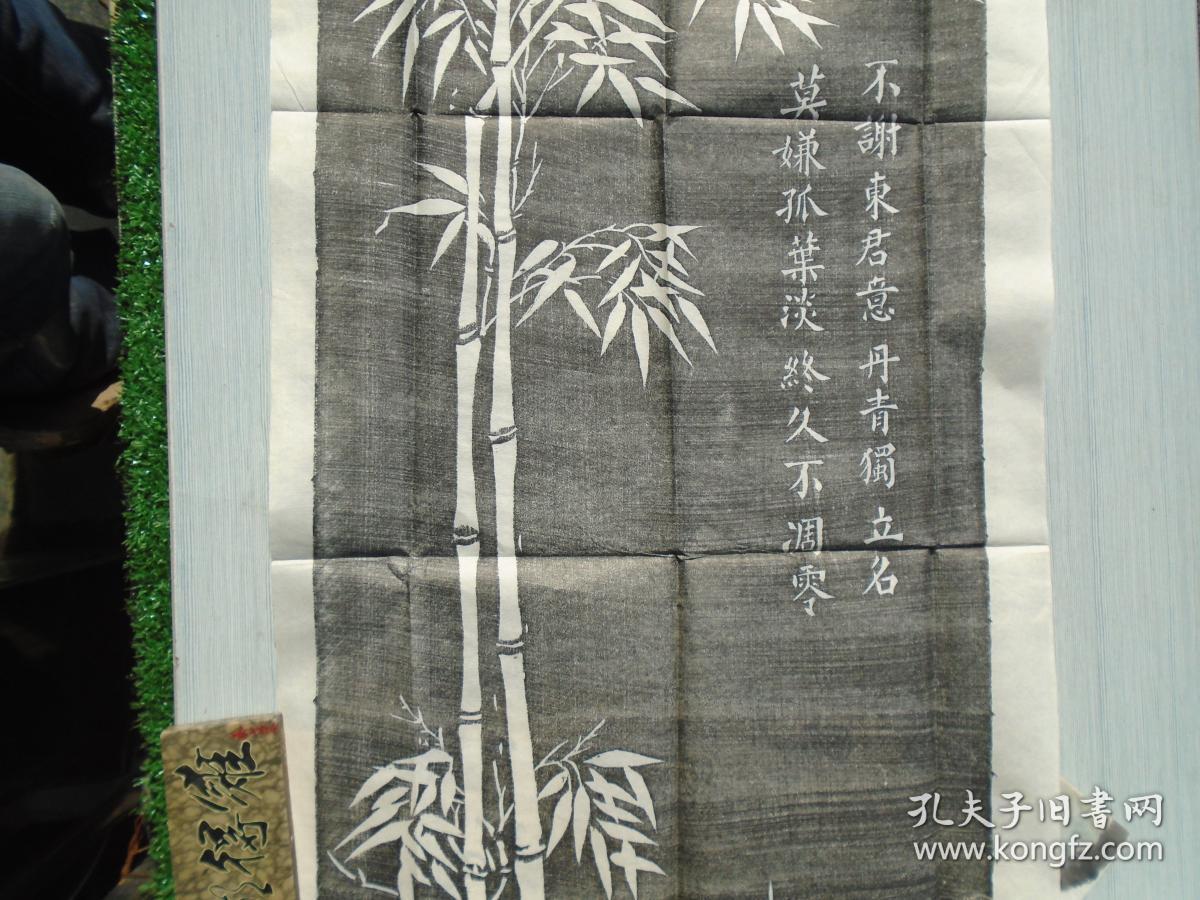 不謝東君意丹青獨立名
莫嫌孤葉淡終久不凋零
孔夫子旧書网
www.kongfz.com